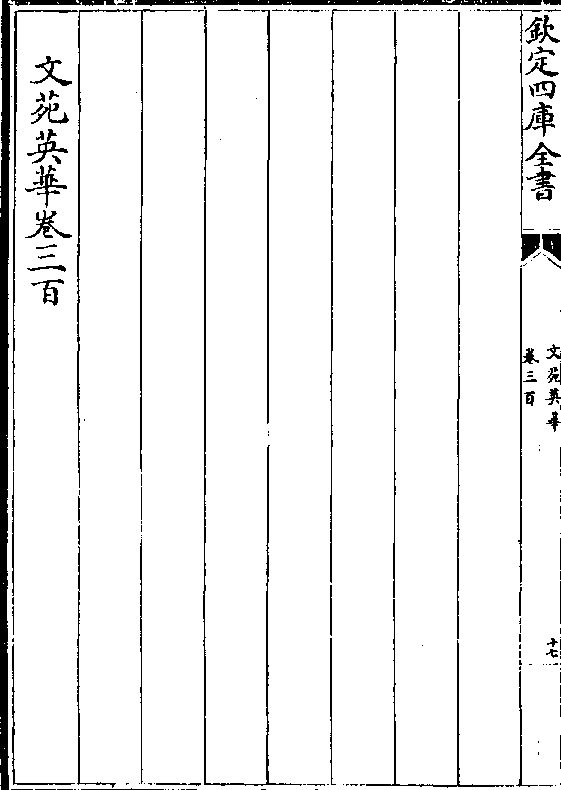 欽定四庫全書
文苑英華
卷三百
十七
文苑英華卷三百